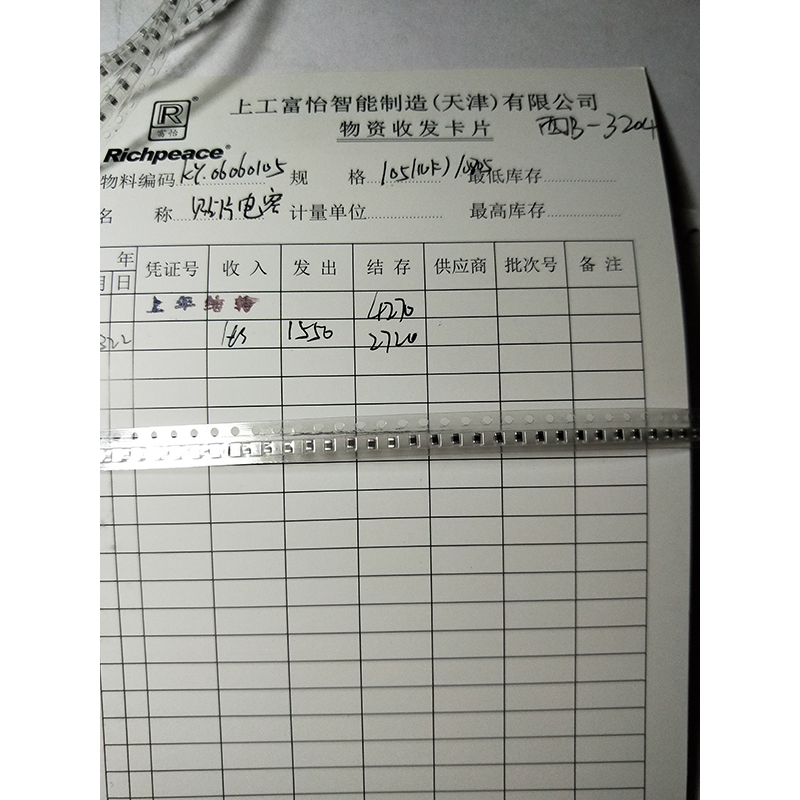 R
富怡
Richpeace®
上工富怡智能制造(天津)有限公司
物资收发卡片
西B-3204
物料编码 KY.06060105 规 格 105(1UF)/0805 最低库存
名 称 贴片电容 计量单位 最高库存
年 凭证号 收入 发出 结存 供应商 批次号 备注
月 日
上年结转 4270
322 1550 2720